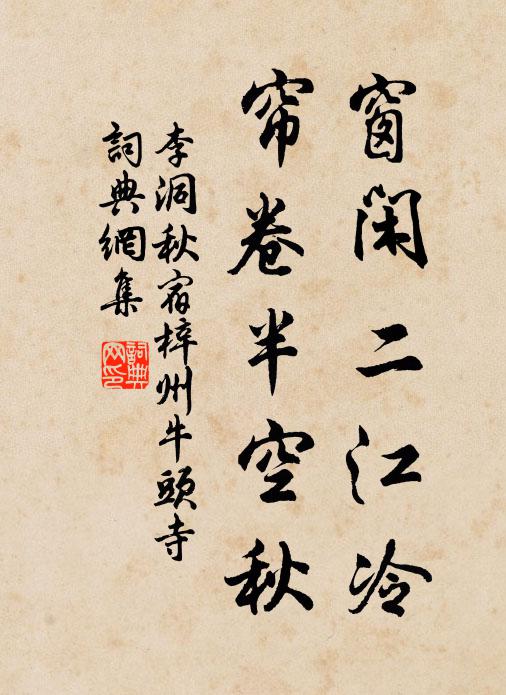 窗閑二江冷
帘卷半空秋
李洞秋宿梓州牛頭寺
詞典網集
詞典网印